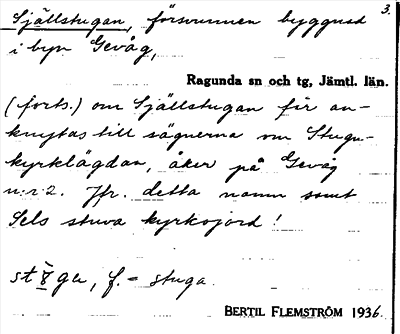 3.
Själlstugan, försvunnen byggnad
i byn Gevåg,
Ragunda sn och tg, Jämtl. län.
(forts.) om Själlstugan får an-
knytas till sägnerna om Stugu-
kyrklägdan, åker på Gevåg
n:r 2. Jfr. detta namn samt
Sels stuva kyrkojord!
ga, f. = stuga.
BERTIL FLEMSTRÖM 1936.